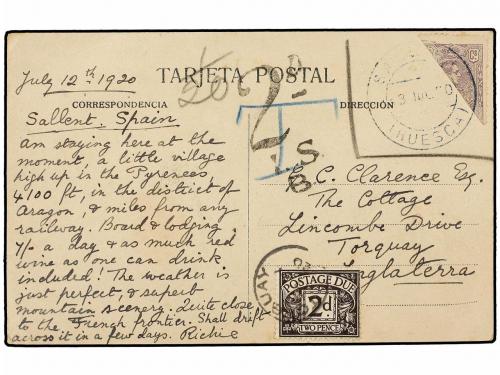 July 12th 1920
TARJETA POSTAL
CORRESPONDENCIA
DIRECCIÓN
Sallent. Spain
Am staying here at the
moment, a little village
high up in the Pyrenees,
4100 ft, in the district of
Aragon, & miles from any
railway. Board & lodging
7/- a day & as much red
wine as one can drink
included! The weather is
just perfect, & superb
mountain scenery. Quite close
to the French frontier. Shall drift
across it in a few days. Richie
2D
T
I.S.
B.
C. Clarence Esq.
The Cottage
Lincombe Drive
Torquay
Inglaterra
(HUESCA)
POSTAGE DUE
2d
TWO PENCE